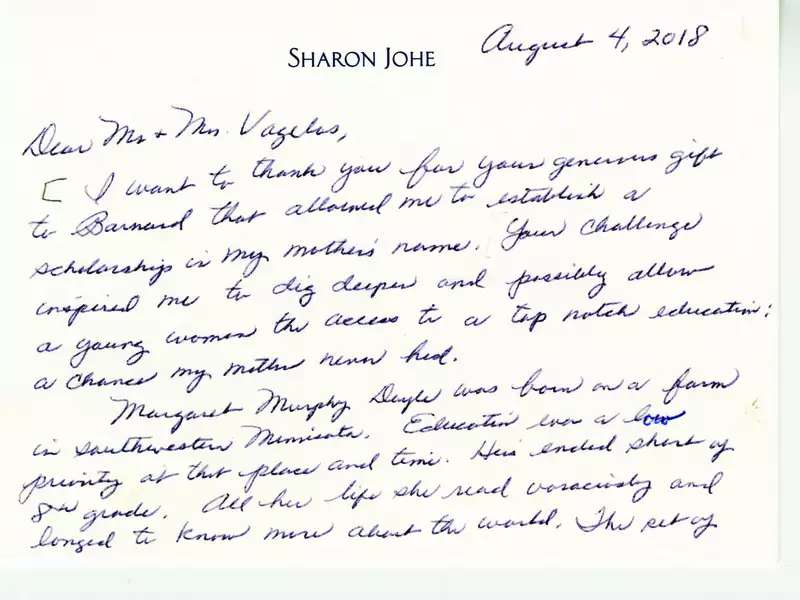 SHARON JOHE
August 4, 2018
Dear Mr + Mrs. Vagelos,
[ I want to thank you for your generous gift
to Barnard that allowed me to establish a
scholarship in my mother's name. Your challenge
inspired me to dig deeper and possibly allow
a young woman the access to a top notch education:
a chance my mother never had.
Margaret Murphy Doyle was born on a farm
in southwestern Minnisota. Education was a low
priority at that place and time. Hers ended short of
8th grade. All her life she read voraciously and
longed to know more about the world. The set of